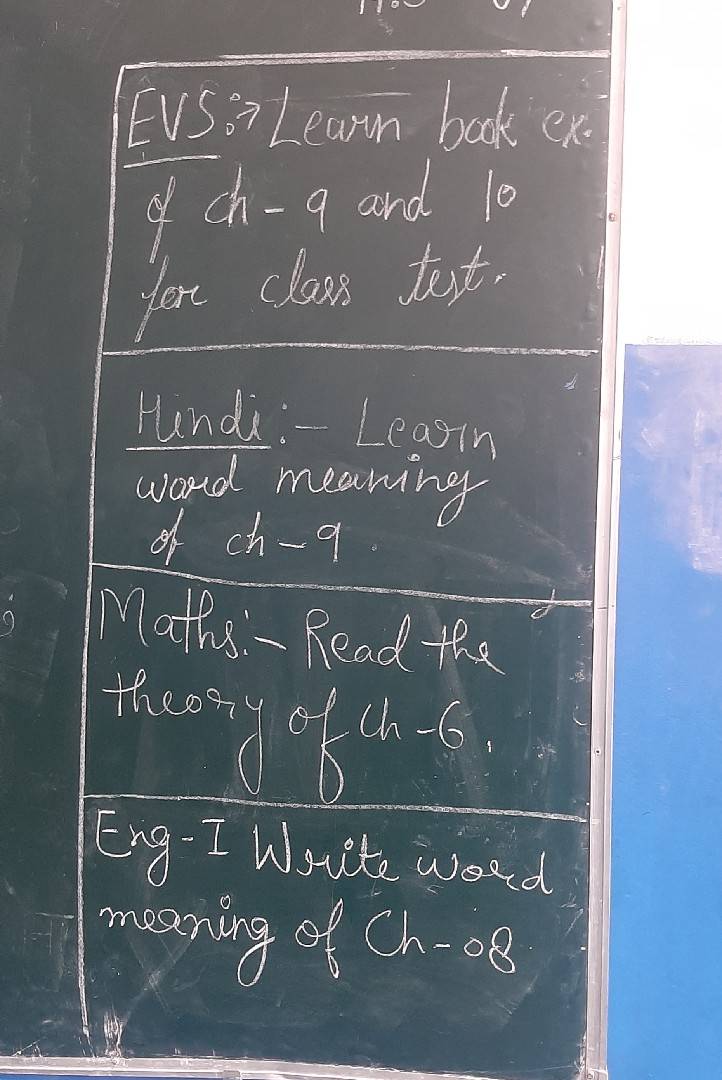 EVS:→ Learn book ex.
of ch-9 and 10
for class test.
Hindi:- Learn
word meaning
of ch-9.
Maths:- Read the
theory of ch-6.
Eng-I Write word
meaning of Ch-08